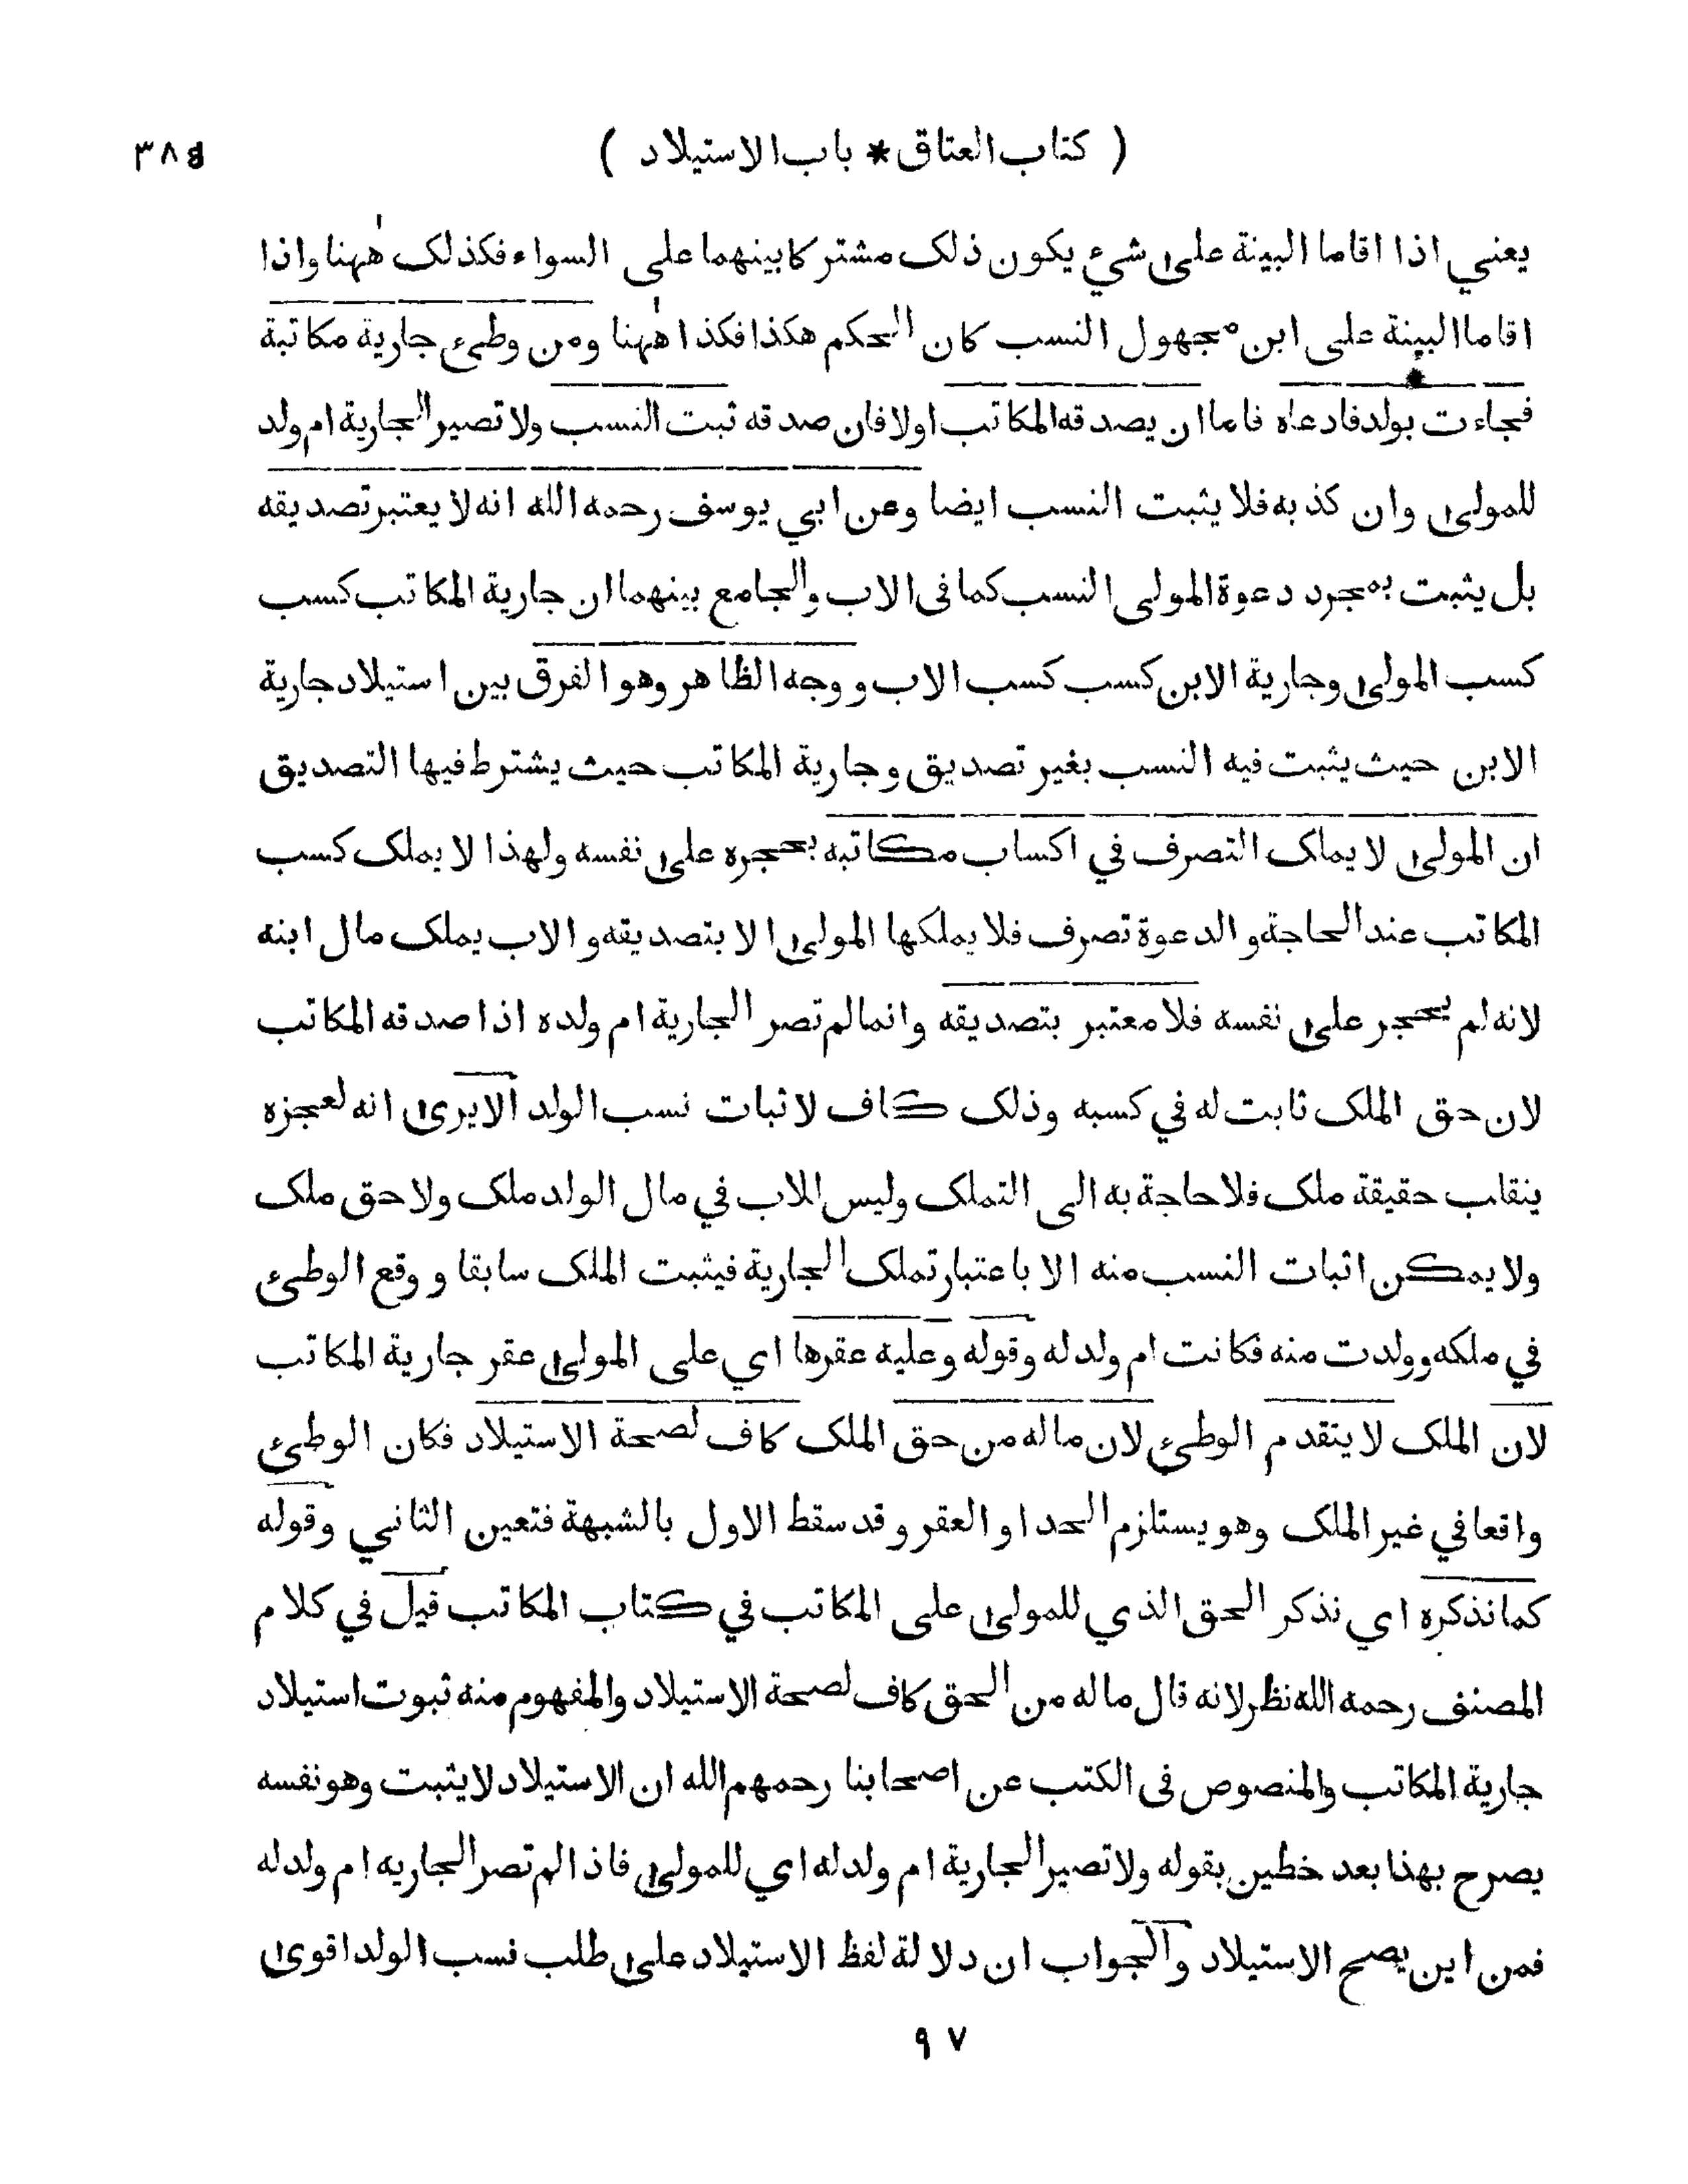 ( كتاب العتاق * باب الاستيلاد ) ٣٨٥
يعني اذا اقاما البينة على شيء يكون ذلك مشتركا بينهما على السواء فكذلك ههنا واذا
اقاما البينة على ابن مجهول النسب كان الحكم هكذا فكذا ههنا ومن وطىء جارية مكاتبة
فجاءت بولد فادعاه فاما ان يصدقه المكاتب اولا فان صدقه ثبت النسب ولا تصير الجارية ام ولد
للمولى وان كذبه فلا يثبت النسب ايضا وعن ابي يوسف رحمه الله انه لا يعتبر تصديقه
بل يثبت بمجرد دعوة المولى النسب كما فى الاب والجامع بينهما ان جارية المكاتب كسب
كسب المولى وجارية الابن كسب كسب الاب ووجه الظاهر وهو الفرق بين استيلاد جارية
الابن حيث يثبت فيه النسب بغير تصديق وجارية المكاتب حيث يشترط فيها التصديق
ان المولى لا يملك التصرف في اكساب مكاتبه بحجره على نفسه ولهذا لا يملك كسب
المكاتب عند الحاجة والدعوة تصرف فلا يملكها المولى الا بتصديقه والاب يملك مال ابنه
لانه لم يحجر على نفسه فلا معتبر بتصديقه وانما لم تصر الجارية ام ولده اذا صدقه المكاتب
لان حق الملك ثابت له في كسبه وذلك كاف لاثبات نسب الولد الا يرى انه لعجزه
ينقلب حقيقة ملك فلا حاجة به الى التملك وليس للاب في مال الولد ملك ولا حق ملك
ولا يمكن اثبات النسب منه الا باعتبار تملك الجارية فيثبت الملك سابقا ووقع الوطىء
في ملكه وولدت منه فكانت ام ولد له وقوله وعليه عقرها اي على المولى عقر جارية المكاتب
لان الملك لا يتقدم الوطىء لان ما له من حق الملك كاف لصحة الاستيلاد فكان الوطىء
واقعا في غير الملك وهو يستلزم الحد او العقر وقد سقط الاول بالشبهة فتعين الثاني وقوله
كما نذكره اي نذكر الحق الذي للمولى على المكاتب في كتاب المكاتب قيل في كلام
المصنف رحمه الله نظر لانه قال ما له من الحق كاف لصحة الاستيلاد والمفهوم منه ثبوت استيلاد
جارية المكاتب والمنصوص فى الكتب عن اصحابنا رحمهم الله ان الاستيلاد لا يثبت وهو نفسه
يصرح بهذا بعد خطين بقوله ولا تصير الجارية ام ولد له اي للمولى فاذا لم تصر الجاريه ام ولد له
فمن اين يصح الاستيلاد والجواب ان دلالة لفظ الاستيلاد على طلب نسب الولد اقوى
٩٧